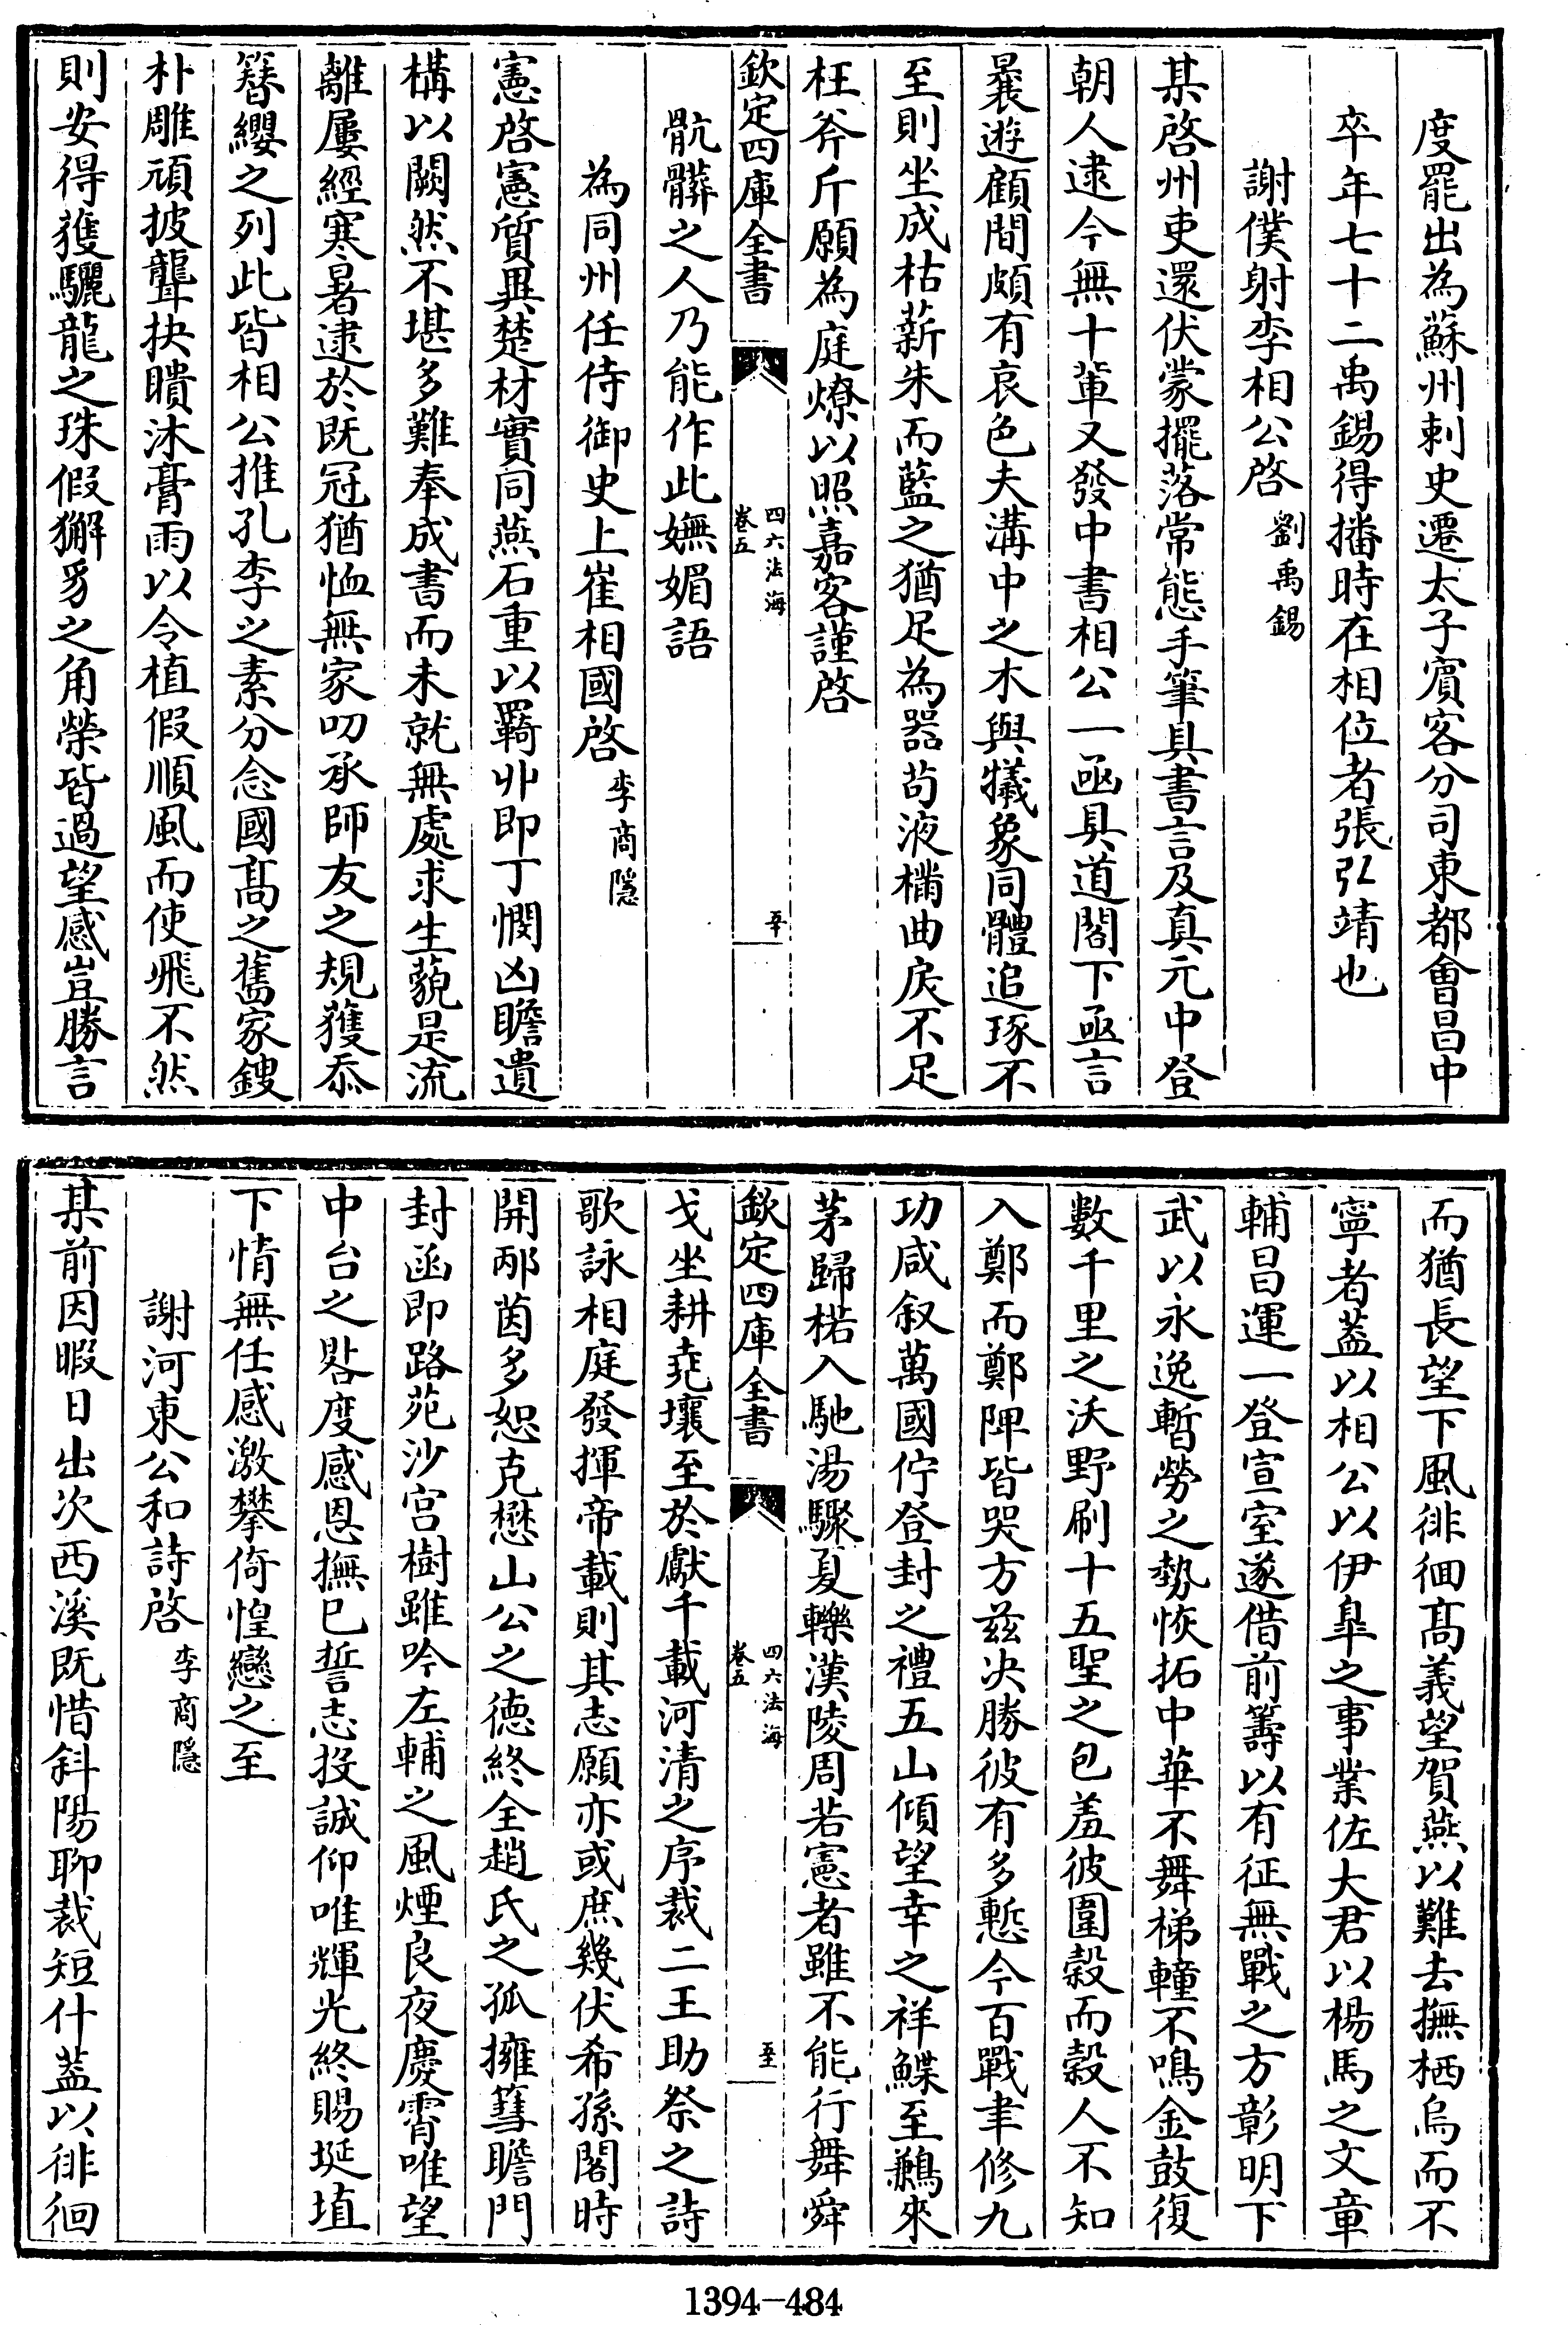 度罷出為蘇州刺史遷太子賓客分司東都會昌中
卒年七十二禹錫得播時在相位者張弘靖也
謝僕射李相公啓 劉禹錫
某啓州吏還伏蒙擺落常態手筆具書言及真元中登
朝人逮今無十輩又發中書相公一函具道閣下亟言
曩遊顧間頗有哀色夫溝中之木與犧象同體追琢不
至則坐成枯薪朱而藍之猶足為器茍液樠曲戾不足
枉斧斤願為庭燎以照嘉客謹啓
欽定四庫全書 四六法海 卷五 五十
骯髒之人乃能作此嫵媚語
為同州任侍御史上崔相國啓 李商隱
憲啓憲質異楚材實同燕石重以羇丱即丁憫凶瞻遺
構以闕然不堪多難奉成書而未就無處求生藐是流
離屢經寒暑逮於既冠猶恤無家叨承師友之規獲忝
簪纓之列此皆相公推孔李之素分念國髙之舊家鎪
朴雕頑披聾抉瞶沐膏雨以令植假順風而使飛不然
則安得獲驪龍之珠假獬豸之角榮皆過望感豈勝言
而猶長望下風徘徊髙義望賀燕以難去撫栖烏而不
寧者葢以相公以伊臯之事業佐大君以楊馬之文章
輔昌運一登宣室遂借前籌以有征無戰之方彰明下
武以永逸暫勞之勢恢拓中華不舞梯轒不鳴金鼓復
數千里之沃野刷十五聖之包羞彼圍穀而穀人不知
入鄭而鄭陴皆哭方兹决勝彼有多慙今百戰聿修九
功咸叙萬國佇登封之禮五山傾望幸之祥鰈至鶼來
茅歸楛入馳湯驟夏轢漢陵周若憲者雖不能行舞舜
欽定四庫全書 四六法海 卷五 至
戈坐耕堯壤至於獻千載河清之序裁二王助祭之詩
歌詠相庭發揮帝載則其志願亦或庶幾伏希孫閣時
開邴茵多恕克懋山公之徳終全趙氏之孤擁篲瞻門
封函即路苑沙宫樹雖吟左輔之風煙良夜慶霄唯望
中台之晷度感恩撫已誓志投誠仰唯輝光終賜埏埴
下情無任感激攀倚惶戀之至
謝河東公和詩啓 李商隱
某前因暇日出次西溪既惜斜陽聊裁短什葢以徘徊
1394-484